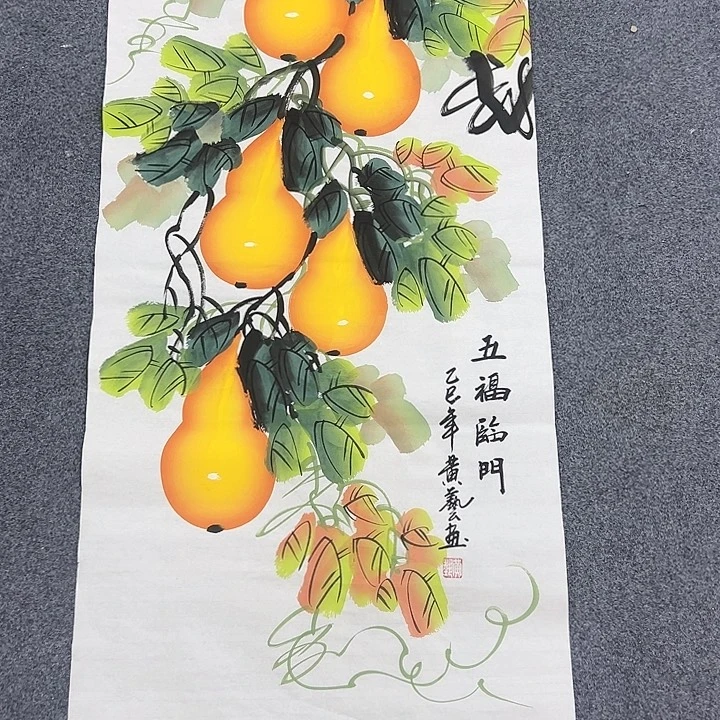 五福臨門
乙巳年黄藝云画